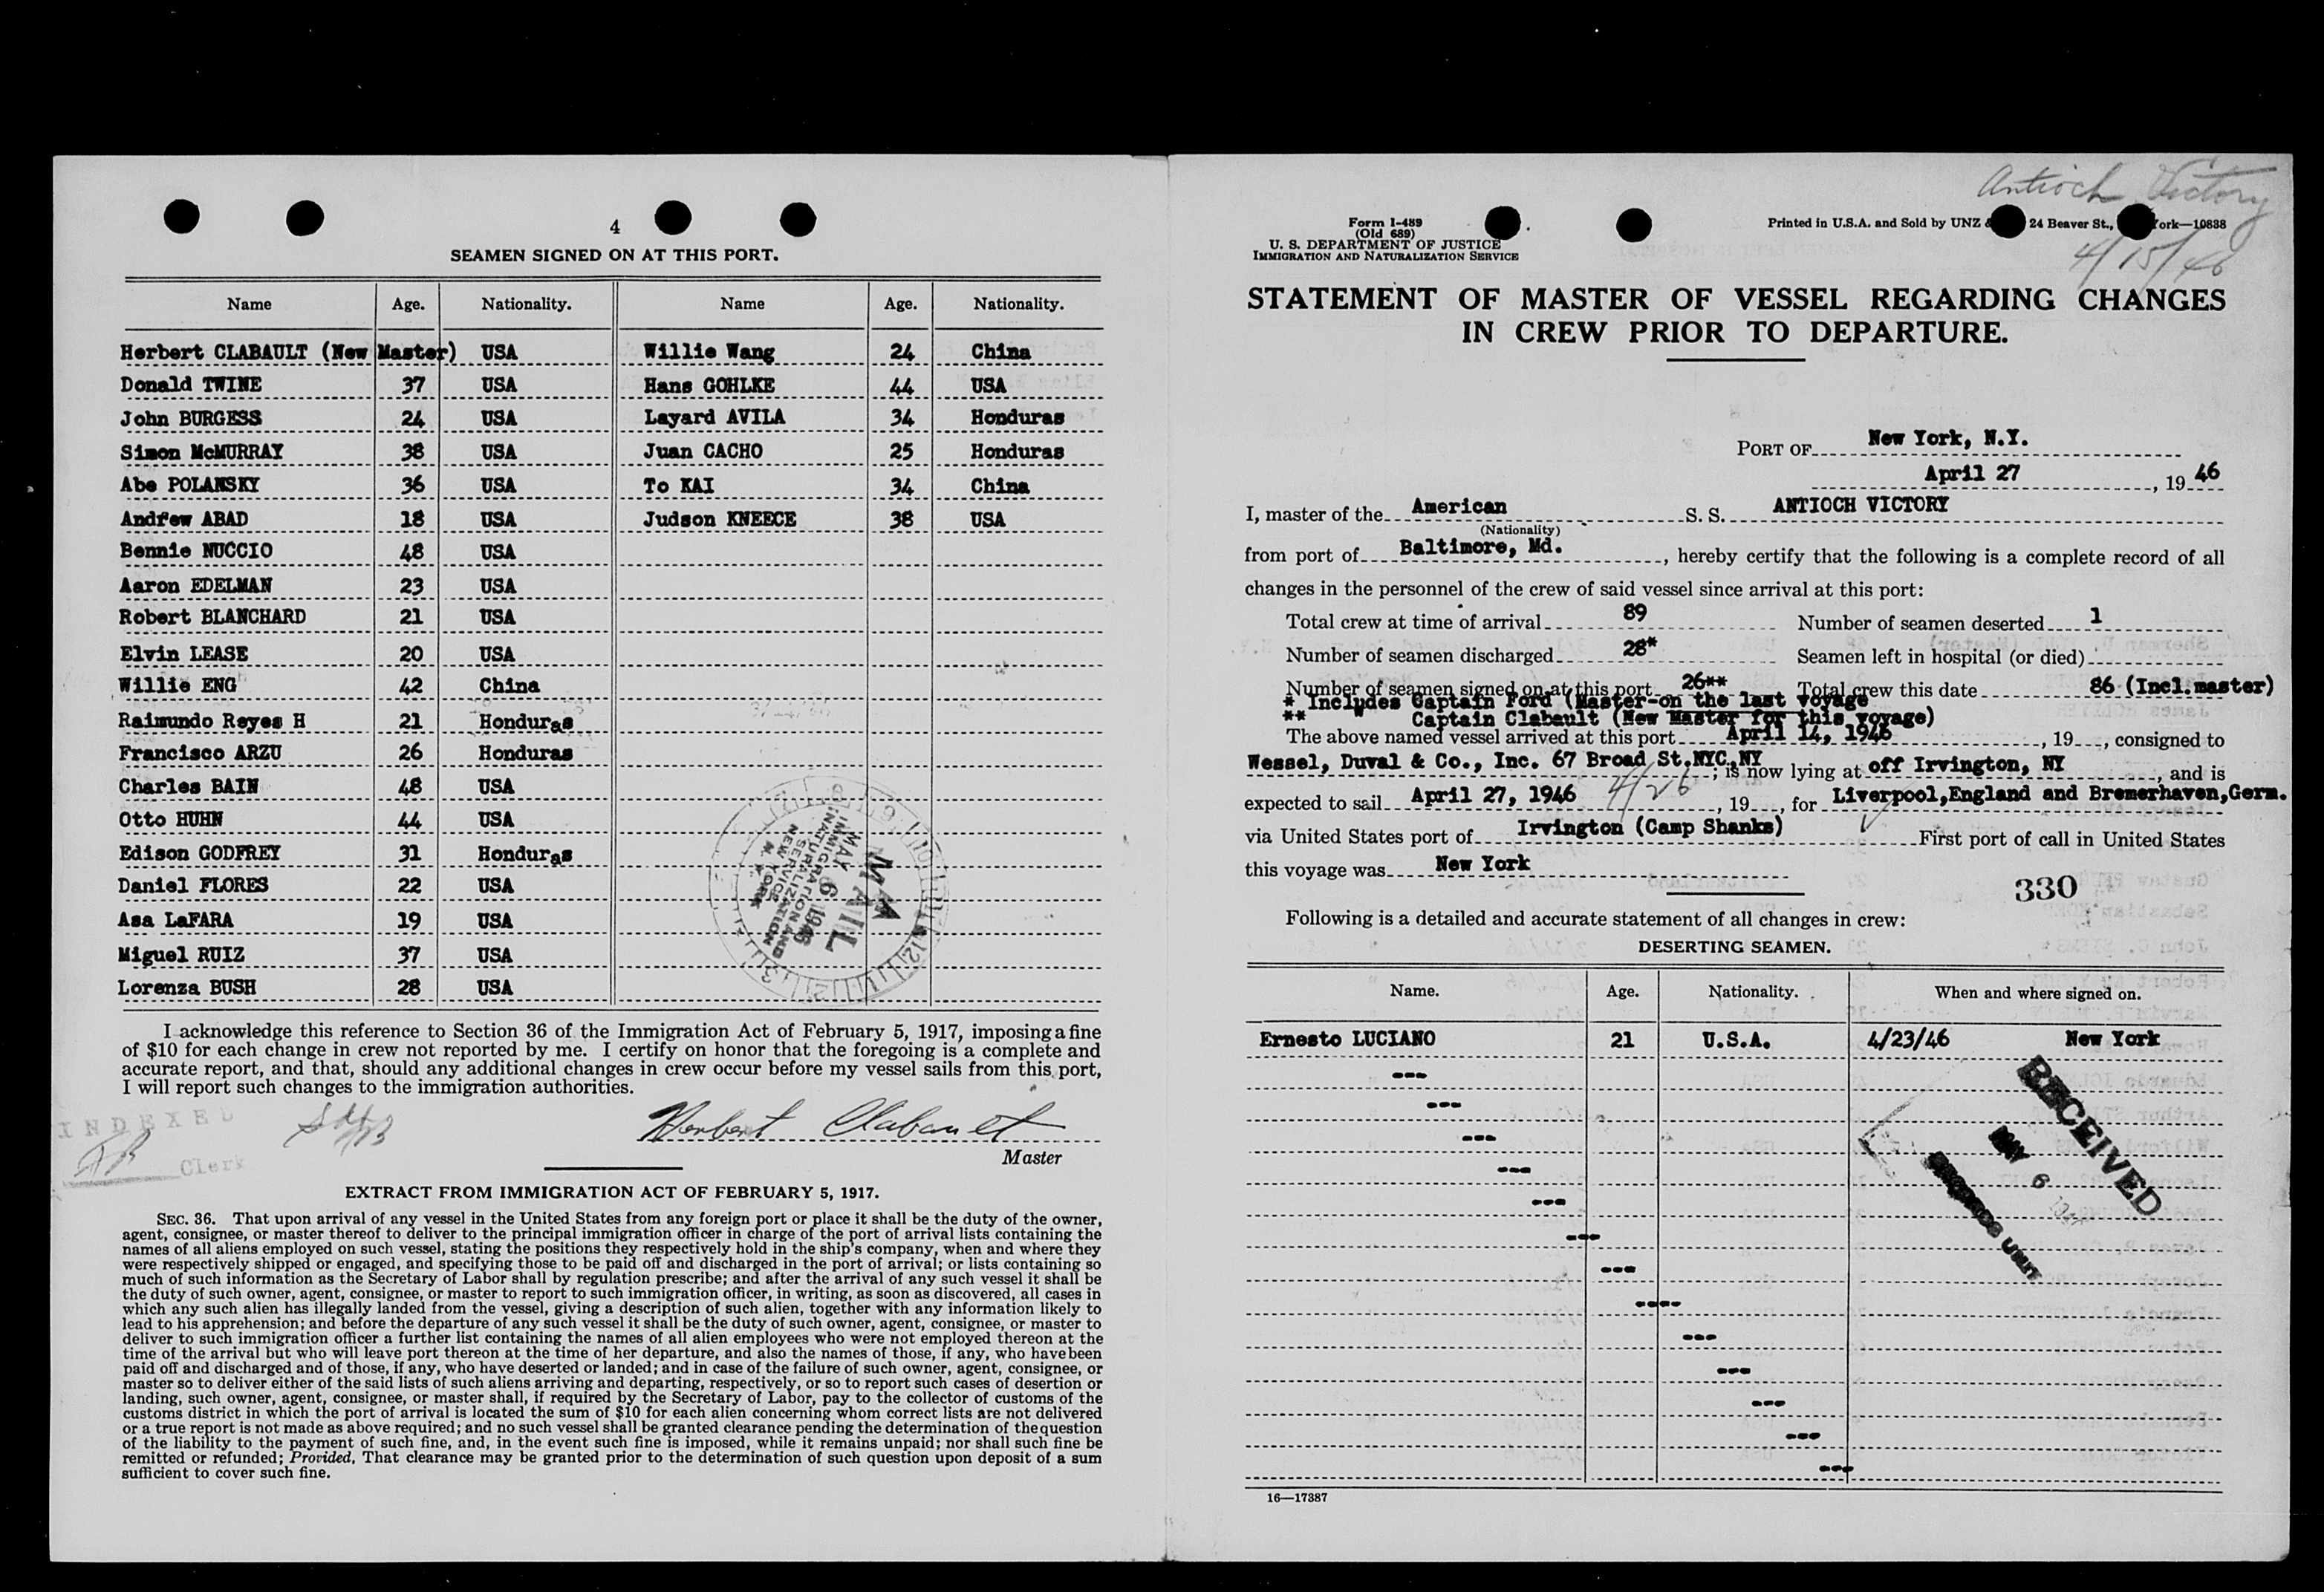 4
SEAMEN SIGNED ON AT THIS PORT.
Name Age. Nationality. Name Age. Nationality.
Herbert CLABAULT (New Master) USA Willie Wang 24 China
Donald TWINE 37 USA Hans GOHLKE 44 USA
John BURGESS 24 USA Layard AVILA 34 Honduras
Simon McMURRAY 38 USA Juan CACHO 25 Honduras
Abe POLANSKY 36 USA To KAI 34 China
Andrew ABAD 18 USA Judson KNEECE 38 USA
Bennie NUCCIO 48 USA
Aaron EDELMAN 23 USA
Robert BLANCHARD 21 USA
Elvin LEASE 20 USA
Willie ENG 42 China
Raimundo Reyes H 21 Honduras
Francisco ARZU 26 Honduras
Charles BAIN 48 USA
Otto HUHN 44 USA
Edison GODFREY 31 Honduras
Daniel FLORES 22 USA
Asa LaFARA 19 USA
Miguel RUIZ 37 USA
Lorenza BUSH 28 USA
MAIL
MAY 6 1946
IMMIGRATION AND
NATURALIZATION
SERVICE
NEW YORK
N. Y.
I acknowledge this reference to Section 36 of the Immigration Act of February 5, 1917, imposing a fine
of $10 for each change in crew not reported by me. I certify on honor that the foregoing is a complete and
accurate report, and that, should any additional changes in crew occur before my vessel sails from this port,
I will report such changes to the immigration authorities.
INDEXED
Clerk
Herbert Clabault
Master
EXTRACT FROM IMMIGRATION ACT OF FEBRUARY 5, 1917.
SEC. 36. That upon arrival of any vessel in the United States from any foreign port or place it shall be the duty of the owner,
agent, consignee, or master thereof to deliver to the principal immigration officer in charge of the port of arrival lists containing the
names of all aliens employed on such vessel, stating the positions they respectively hold in the ship's company, when and where they
were respectively shipped or engaged, and specifying those to be paid off and discharged in the port of arrival; or lists containing so
much of such information as the Secretary of Labor shall by regulation prescribe; and after the arrival of any such vessel it shall be
the duty of such owner, agent, consignee, or master to report to such immigration officer, in writing, as soon as discovered, all cases in
which any such alien has illegally landed from the vessel, giving a description of such alien, together with any information likely to
lead to his apprehension; and before the departure of any such vessel it shall be the duty of such owner, agent, consignee, or master to
deliver to such immigration officer a further list containing the names of all alien employees who were not employed thereon at the
time of the arrival but who will leave port thereon at the time of her departure, and also the names of those, if any, who have been
paid off and discharged and of those, if any, who have deserted or landed; and in case of the failure of such owner, agent, consignee, or
master so to deliver either of the said lists of such aliens arriving and departing, respectively, or so to report such cases of desertion or
landing, such owner, agent, consignee, or master shall, if required by the Secretary of Labor, pay to the collector of customs of the
customs district in which the port of arrival is located the sum of $10 for each alien concerning whom correct lists are not delivered
or a true report is not made as above required; and no such vessel shall be granted clearance pending the determination of the question
of the liability to the payment of such fine, and, in the event such fine is imposed, while it remains unpaid; nor shall such fine be
remitted or refunded; Provided, That clearance may be granted prior to the determination of such question upon deposit of a sum
sufficient to cover such fine.
Antioch Victory
4/15/46
Form I-489
(Old 689)
U. S. DEPARTMENT OF JUSTICE
IMMIGRATION AND NATURALIZATION SERVICE
Printed in U.S.A. and Sold by UNZ & 24 Beaver St., York—10838
STATEMENT OF MASTER OF VESSEL REGARDING CHANGES
IN CREW PRIOR TO DEPARTURE.
PORT OF New York, N.Y.
April 27, 19 46
I, master of the American S. S. ANTIOCH VICTORY
(Nationality)
from port of Baltimore, Md., hereby certify that the following is a complete record of all
changes in the personnel of the crew of said vessel since arrival at this port:
Total crew at time of arrival 89 Number of seamen deserted 1
Number of seamen discharged 28* Seamen left in hospital (or died)
Number of seamen signed on at this port 26** Total crew this date 86 (Incl.master)
* Includes Captain Ford (Master-on the last voyage
** " Captain Clabault (New Master for this voyage)
The above named vessel arrived at this port April 14, 1946, 19 , consigned to
Wessel, Duval & Co., Inc. 67 Broad St.NYC,NY; is now lying at off Irvington, NY, and is
expected to sail April 27, 1946 4/26, 19 , for Liverpool,England and Bremerhaven,Germ.
via United States port of Irvington (Camp Shanks) First port of call in United States
this voyage was New York
330
Following is a detailed and accurate statement of all changes in crew:
DESERTING SEAMEN.
Name. Age. Nationality. When and where signed on.
Ernesto LUCIANO 21 U.S.A. 4/23/46 New York
RECEIVED
MAY 6
RECORDS UNIT
16—17387